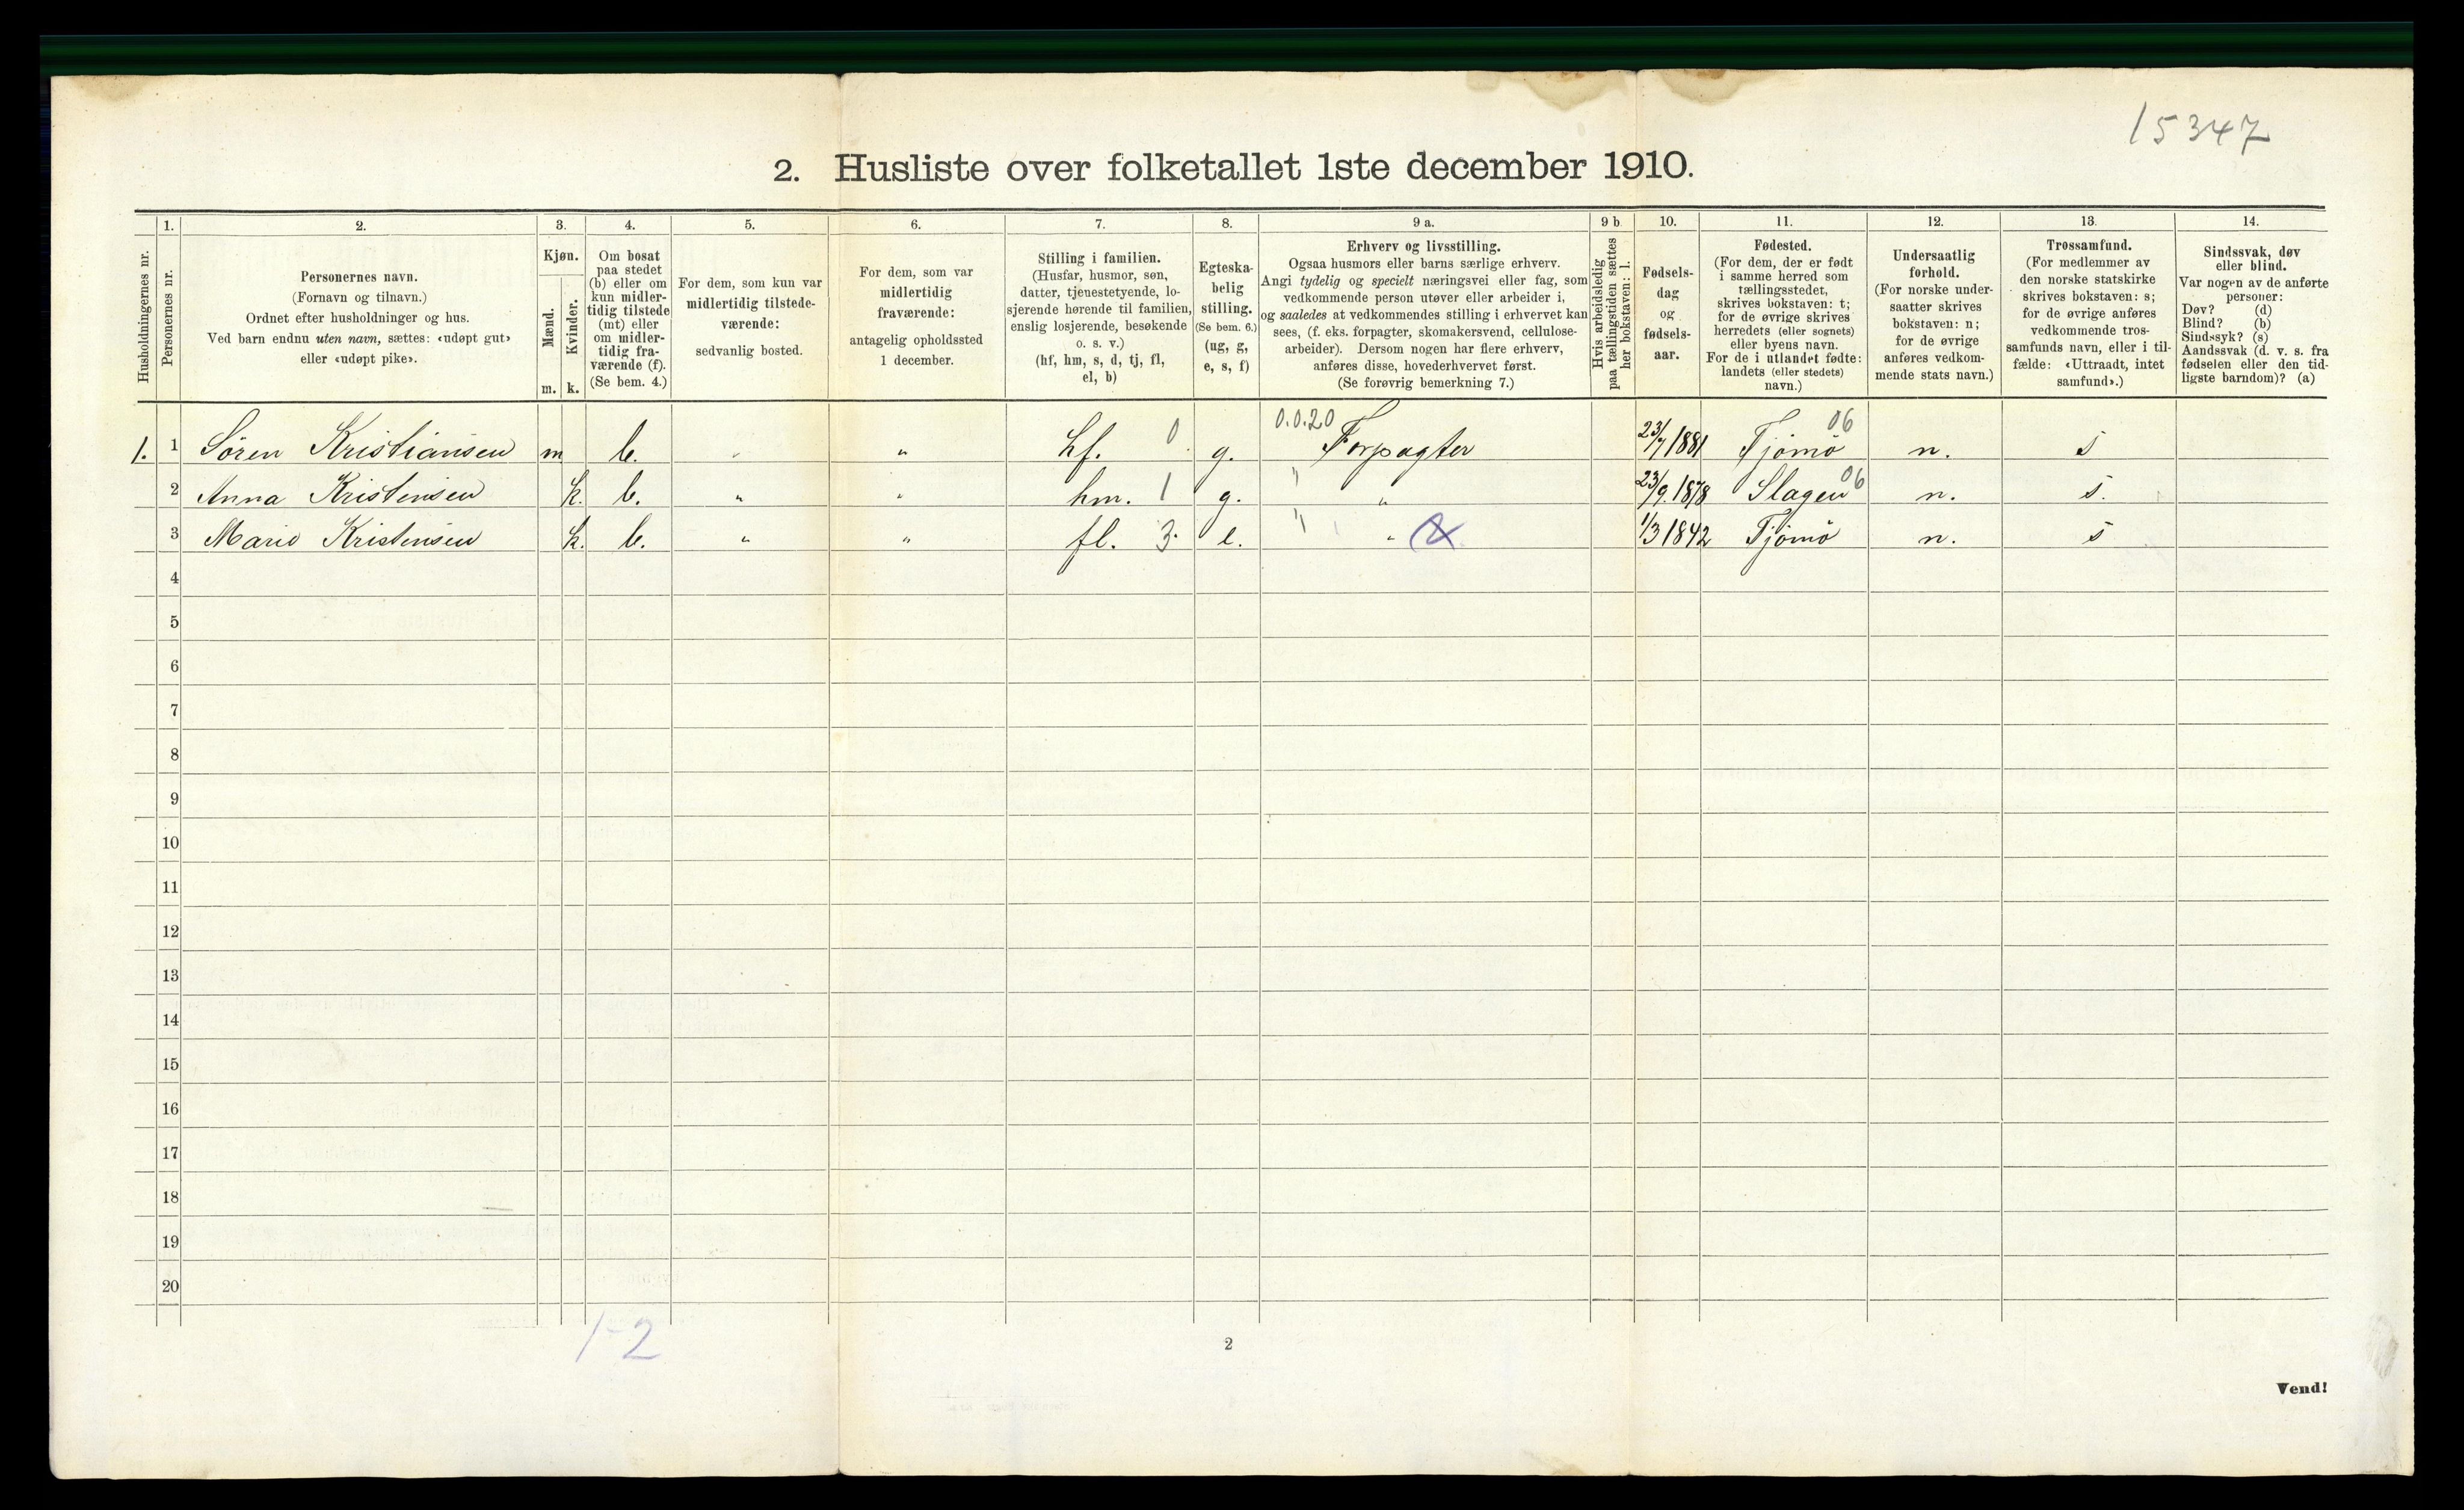 15347
2. Husliste over folketallet 1ste december 1910.
Husholdningernes nr.
1.
Personernes nr.
2.
Personernes navn.
(Fornavn og tilnavn.)
Ordnet efter husholdninger og hus.
Ved barn endnu uten navn, sættes: «udøpt gut»
eller «udøpt pike».
3.
Kjøn.
Mænd.
m.
Kvinder.
k.
4.
Om bosat
paa stedet
(b) eller om
kun midler-
tidig tilstede
(mt) eller
om midler-
tidig fra-
værende (f).
(Se bem. 4.)
5.
For dem, som kun var
midlertidig tilstede-
værende:
sedvanlig bosted.
6.
For dem, som var
midlertidig
fraværende:
antagelig opholdssted
1 december.
7.
Stilling i familien.
(Husfar, husmor, søn,
datter, tjenestetyende, lo-
sjerende hørende til familien,
enslig losjerende, besøkende
o. s. v.)
(hf, hm, s, d, tj, fl,
el, b)
8.
Egteska-
belig
stilling.
(Se bem. 6.)
(ug, g,
e, s, f)
9 a.
Erhverv og livsstilling.
Ogsaa husmors eller barns særlige erhverv.
Angi tydelig og specielt næringsvei eller fag, som
vedkommende person utøver eller arbeider i,
og saaledes at vedkommendes stilling i erhvervet kan
sees, (f. eks. forpagter, skomakersvend, cellulose-
arbeider). Dersom nogen har flere erhverv,
anføres disse, hovederhvervet først.
(Se forøvrig bemerkning 7.)
9 b
Hvis arbeidsledig
paa tællingstiden sættes
her bokstaven: l.
10.
Fødsels-
dag
og
fødsels-
aar.
11.
Fødested.
(For dem, der er født
i samme herred som
tællingsstedet,
skrives bokstaven: t;
for de øvrige skrives
herredets (eller sognets)
eller byens navn.
For de i utlandet fødte:
landets (eller stedets)
navn.)
12.
Undersaatlig
forhold.
(For norske under-
saatter skrives
bokstaven: n;
for de øvrige
anføres vedkom-
mende stats navn.)
13.
Trossamfund.
(For medlemmer av
den norske statskirke
skrives bokstaven: s;
for de øvrige anføres
vedkommende tros-
samfunds navn, eller i til-
fælde: «Uttraadt, intet
samfund».)
14.
Sindssvak, døv
eller blind.
Var nogen av de anførte
personer:
Døv? (d)
Blind? (b)
Sindssyk? (s)
Aandssvak (d. v. s. fra
fødselen eller den tid-
ligste barndom)? (a)
1. 1 Sören Kristiansen m b. " " hf. 0 g. 0.0.20 Forpagter 23/7 1881 Tjømø 06 n. s
2 Anna Kristensen k. b. " " hm. 1 g. " " 23/9. 1878 Slagen 06 n. s.
3 Marie Kristensen k. b. " " fl. 3. e. " " 1/3 1842 Tjømø n. s
4
5
6
7
8
9
10
11
12
13
14
15
16
17
18
19
20
1-2
2
Vend!